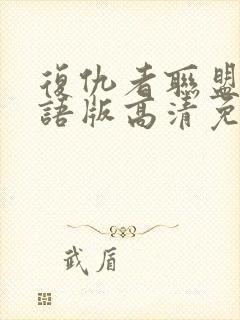 復仇者聯盟
語版高清免
武盾